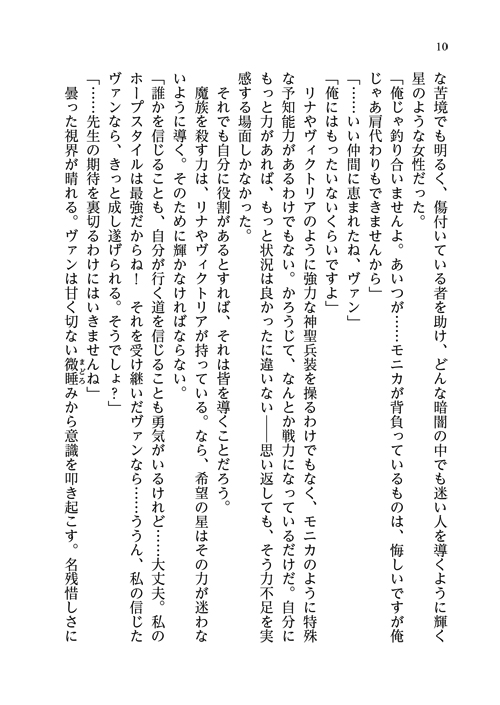 10
な苦境でも明るく、傷付いている者を助け、どんな暗闇の中でも迷い人を導くように輝く
星のような女性だった。
「俺じゃ釣り合いませんよ。あいつが……モニカが背負っているものは、悔しいですが俺
じゃあ肩代わりもできませんから」
「……いい仲間に恵まれたね、ヴァン」
「俺にはもったいないくらいですよ」
リナやヴィクトリアのように強力な神聖兵装を操るわけでもなく、モニカのように特殊
な予知能力があるわけでもない。かろうじて、なんとか戦力になっているだけだ。自分に
もっと力があれば、もっと状況は良かったに違いない――思い返しても、そう力不足を実
感する場面しかなかった。
それでも自分に役割があるとすれば、それは皆を導くことだろう。
魔族を殺す力は、リナやヴィクトリアが持っている。なら、希望の星はその力が迷わな
いように導く。そのために輝かなければならない。
「誰かを信じることも、自分が行く道を信じることも勇気がいるけれど……大丈夫。私の
ホープスタイルは最強だからね！　それを受け継いだヴァンなら……ううん、私の信じた
ヴァンなら、きっと成し遂げられる。そうでしょ？」
「……先生の期待を裏切るわけにはいきませんね」
曇った視界が晴れる。ヴァンは甘く切ない微睡みから意識を叩き起こす。名残惜しさに
まどろ